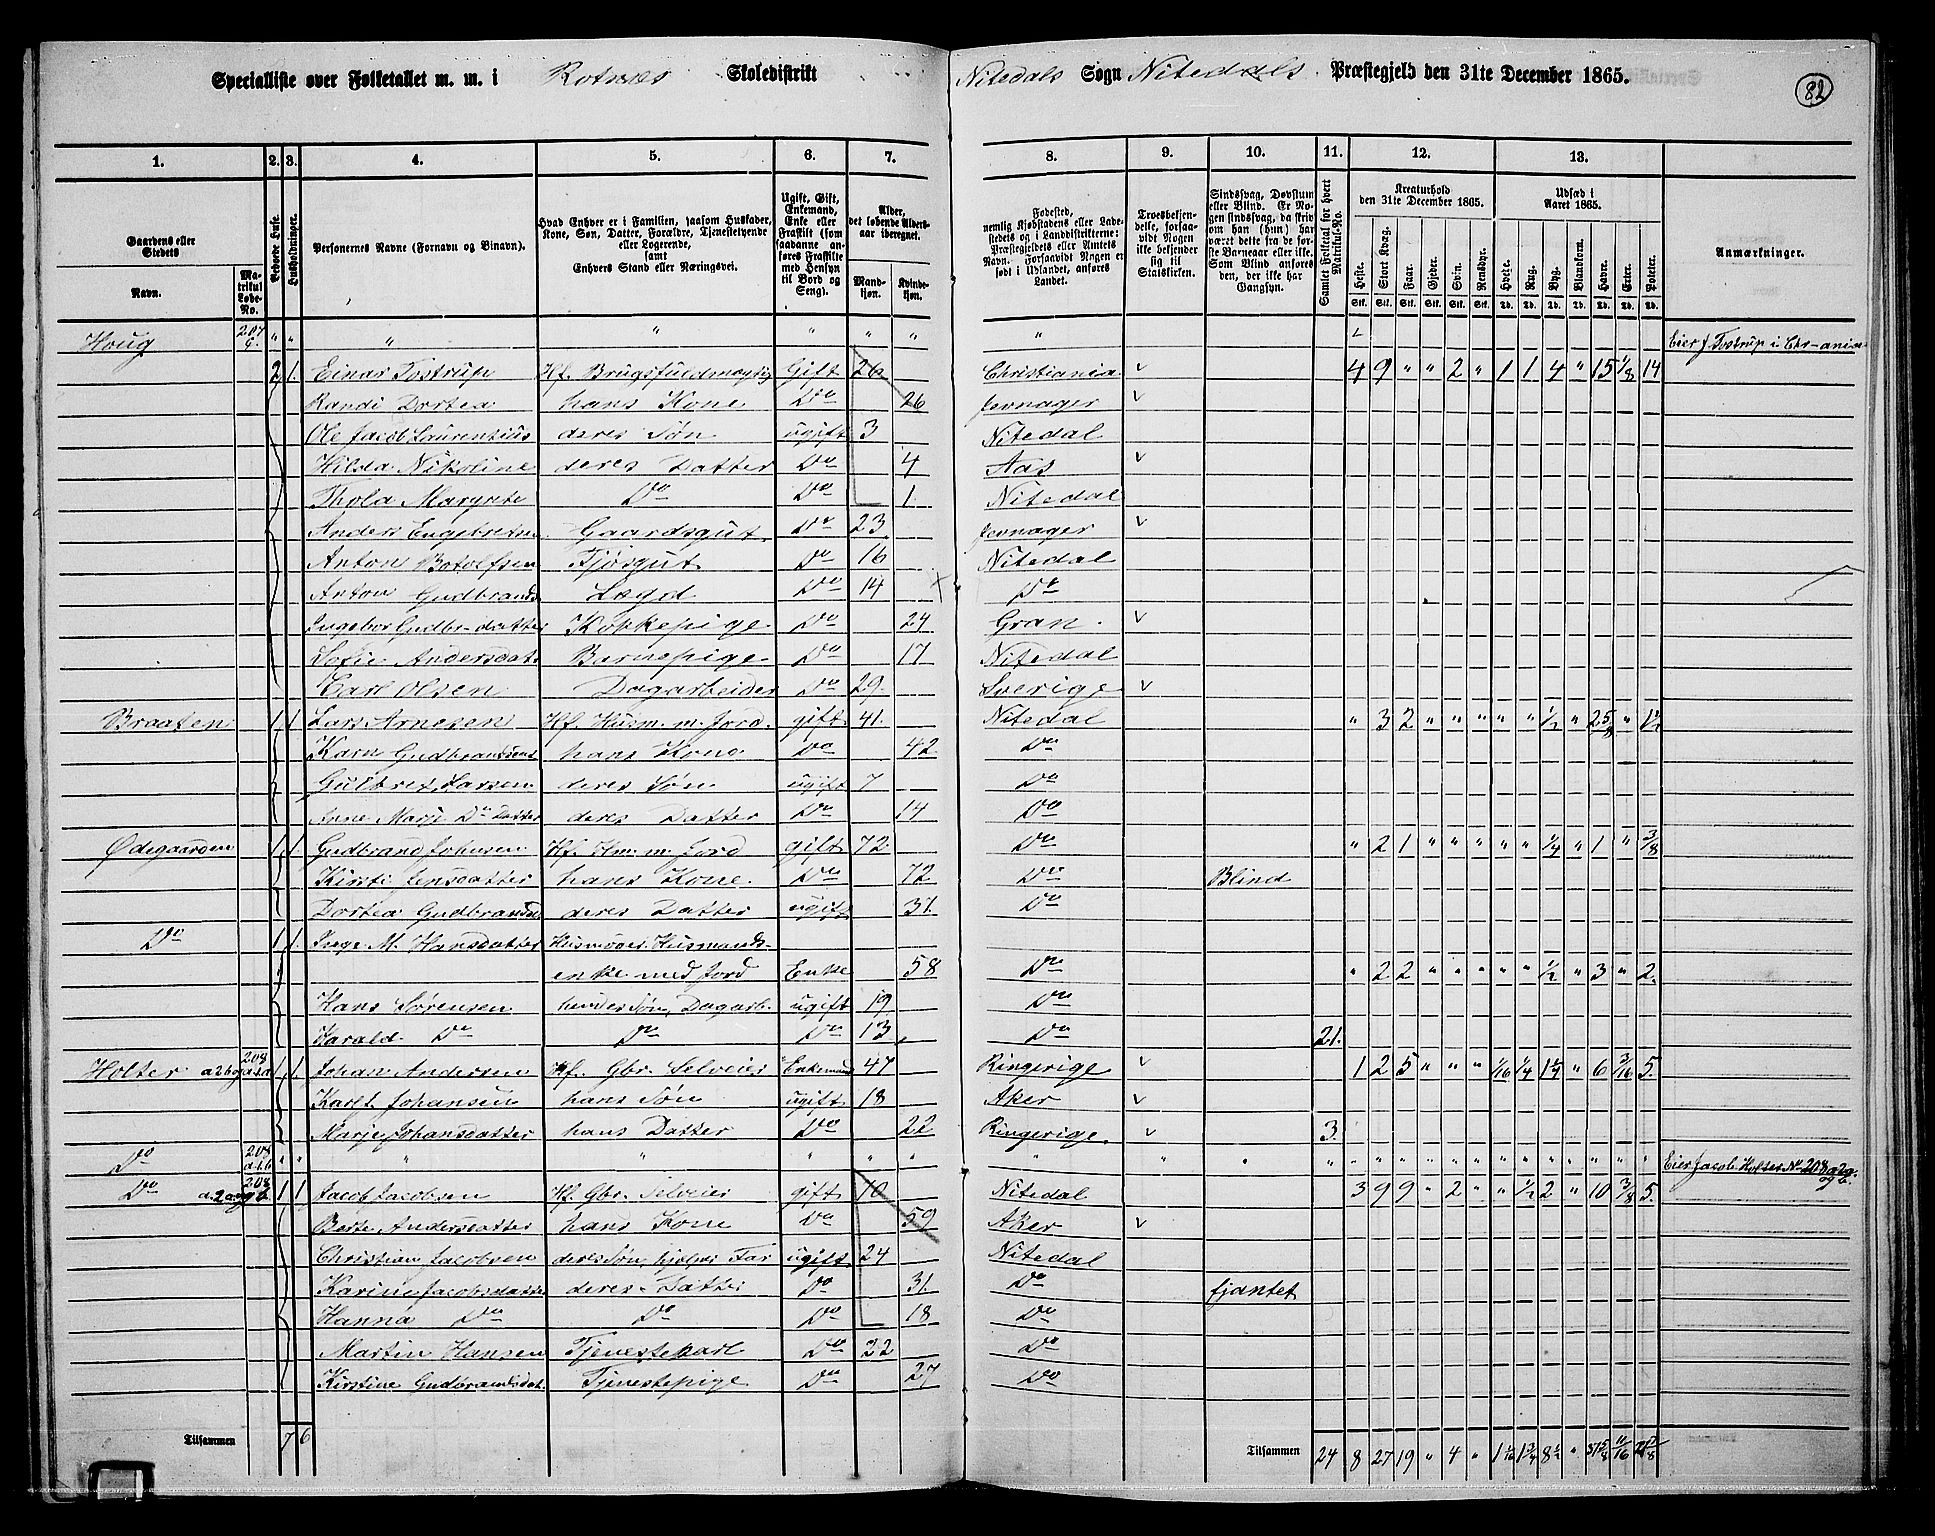 Specialliste over Folketallet m. m. i Rotnæs Skoledistrikt Nitedals Sogn Nitedals Præstegjeld den 31te December 1865.
82
1. 2. 3. 4. 5. 6. 7. 8. 9. 10. 11. 12. 13.
Gaardens eller Stedets Navn.
Matrikul Løbe-No.
Beboede Huse.
Husholdninger.
Personernes Navne (Fornavn og Binavn).
Hvad Enhver er i Familien, saasom Husfader, Kone, Søn, Datter, Forældre, Tjenestetyende eller Logerende, samt Enhvers Stand eller Næringsvei.
Ugift, Gift, Enkemand, Enke eller Fraskilt (som saadanne anføres Fraskilte med Hensyn til Bord og Seng).
Alder, det løbende Aldersaar iberegnet.
Mandkjøn. Kvindekjøn.
Fødested, nemlig Kjøbstadens eller Ladestedets og i Landdistrikterne: Præstegjeldets eller Amtets Navn. Forsaavidt Nogen er født i Udlandet, anføres Landet.
Troesbekjendelse, forsaavidt Nogen ikke bekjender sig til Statskirken.
Sindssvag, Døvstum eller Blind. Er Nogen sindssvag, da skriv om han (hun) har været dette fra de første Barneaar eller ikke. Som Blind anføres den, der ikke har Gangsyn.
Samlet Folketal for hvert Matrikul-No.
Kreaturhold den 31te December 1865.
Heste. Stort Kvæg. Faar. Gjeder. Svin. Rensdyr.
Udsæd i Aaret 1865.
Hvede. Rug. Byg. Blandkorn. Havre. Erter. Poteter.
Anmærkninger.
Houg 207 " " " " " " " " Eier J. Tostrup i Chr-ania
2 1. Einar Tostrup Hf. Brugsfuldmægtig Gift 26 Christiania v 4 9 " " 2 " 1 1 4 " 15 1/8 14
Randi Dortea hans Kone Do 26 Jevnager v
Ole Jacob Laurentius deres Søn ugift 3 Nitedal
Hilda Nikoline deres Datter Do 4 Aas v
Thola Margrete Do Do 1. Nitedal
Anders Engebretsn. Gaardsgut Do 23 Jevnager v
Anton Botolfsen Fjøsgut Do 16 Nitedal
Anton Gudbrands. Lægd Do 14 Do
Ingebor Gudbr-datter Kokkepige Do 24 Gran. v
Sofie Andersdat. Barnepige Do 17 Nitedal
Carl Olsen Dagarbeider Do 29. Sverige v
Braaten 1 1. Lars Arnesen Hf. Husm. m. Jord. gift 41. Nitedal " 3 2 " " " " " 1/2 " 2 5/8 " 1 1/2
Karn Gudbrandsens hans Kone Do 42 Do
Gulbret Larsen deres Søn ugift 7 Do
Anne Marje Do Datter deres Datter Do 14 Do
Ødegaarden 1 1. Gudbrand Johnsen Hf. Hm. m. Jord gift 72. Do " 2 1 " " " " " 1/4 " 1 " 3/8
Kirsti Jensdatter hans Kone Do 72 Do Blind
Dortea Gudbrandsn. deres Datter ugift 31. Do
Do 1 1. Inge M. Hansdatter Husmoder. Husmands-
enke med Jord Enke 58 Do " 2 2 " " " " " 1/2 " 3 " 2.
Hans Sørensen hendes Søn, Dagarb. ugift 19 Do
Harald Do Do Do 13 Do 21.
Holter 208 1 1. Johan Andersen Hf. Gbr. Selveier Enkemand 47 Ringerige v 1 2 5 " " " 1/16 1/4 1 1/4 " 6 3/16 5.
Karl Johansen hans Søn ugift 18 Aker v
Marje Johansdatter hans Datter Do 22 Ringerige v 3.
Do 208 " " " " " " " " " " " " " " " " " " " " " " " Eier Jacob Holter No 208 a2g. og b.
Do 208 1 1 Jacob Jacobsen Hf. Gbr. Selveier gift 70 Nitedal 3 9 9 " 2 " " 1/2 2 " 10 3/8 5.
Berte Andersdatter hans Kone Do 59 Aker v
Christian Jacobsen deres Søn, hjelper Far ugift 24 Nitedal
Karine Jacobsdatter deres Datter Do 31. Do fjantet
Hanna Do Do Do 18 Do
Martin Hansen Tjenestekarl Do 22 Do
Kirstine Gudbrandsdat. Tjenestepige Do 27 Do
Tilsammen 7 6
Tilsammen 24 8 27 19 " 4 " 1 1/16 1 3/4 8 1/2 " 37 5/8 11/16 27 7/8